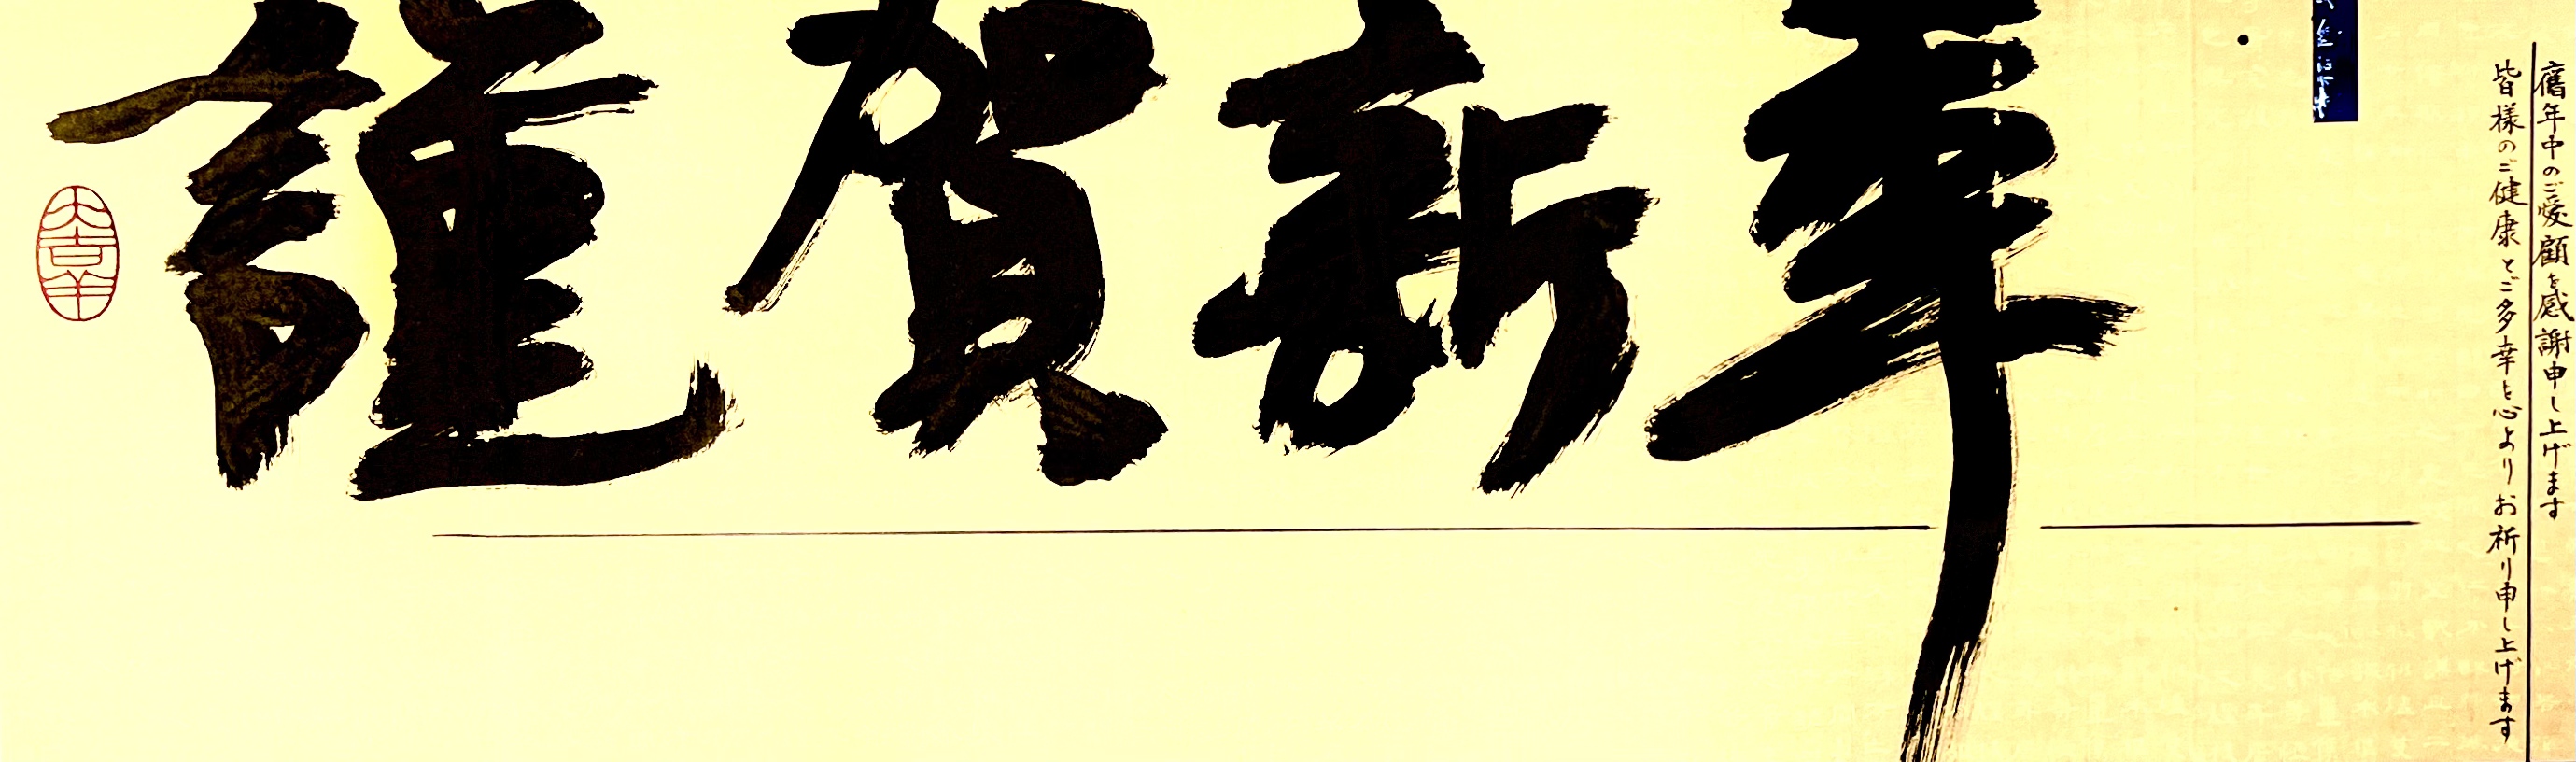 謹賀新年
舊年中のご愛顧を感謝申し上げます
皆様のご健康とご多幸を心よりお祈り申し上げます